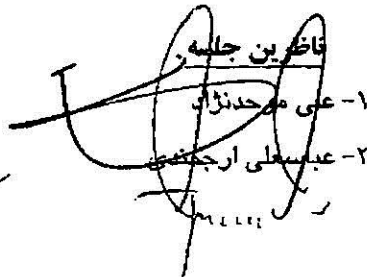 ناظرین جلسه:
۱- علی موحدنژاد
۲- عباسعلی ارجمندی